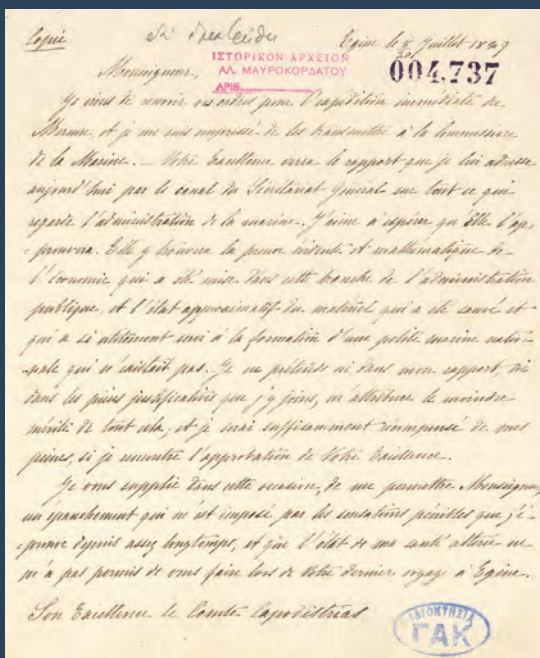 Copie
Egine le 8/20 Juillet 1829
ΙΣΤΟΡΙΚΟΝ ΑΡΧΕΙΟΝ
ΑΛ. ΜΑΥΡΟΚΟΡΔΑΤΟΥ
ΑΡΙΘ.
004.737
Monseigneur,
Je viens de recevoir vos ordres pour l'expédition immédiate de
et je me suis empressé de les transmettre à la Commission
de la Marine. — Votre Excellence verra le rapport que je lui adresse
aujourd'hui par le canal du Secrétariat Général sur tout ce qui
regarde l'administration de la marine. J'aime à espérer qu'elle l'ap-
-prouvera. Elle y trouvera la preuve évidente et mathématique de
l'économie qui a été mise dans cette branche de l'administration
publique, et l'état approximatif du matériel qui a été sauvé et
qui a si utilement servi à la formation d'une petite marine natio-
-nale qui n'existait pas. Je ne prétends ni dans mon rapport, ni
dans les pièces justificatives que j'y joins, m'attribuer le moindre
mérite de tout cela, et je serai suffisamment récompensé de mes
peines, si je rencontre l'approbation de Votre Excellence.
Je vous supplie dans cette occasion, de me permettre Monseigneur
un épanchement qui m'est imposé par les sensations pénibles que j'é-
-prouve depuis assez longtemps, et que l'état de ma santé altérée ne
m'a pas permis de vous faire lors de Votre dernier voyage à Egine.
Son Excellence le Comte Capodistrias
ΙΔΙΟΚΤΗΣΙΑ
ΓΑΚ